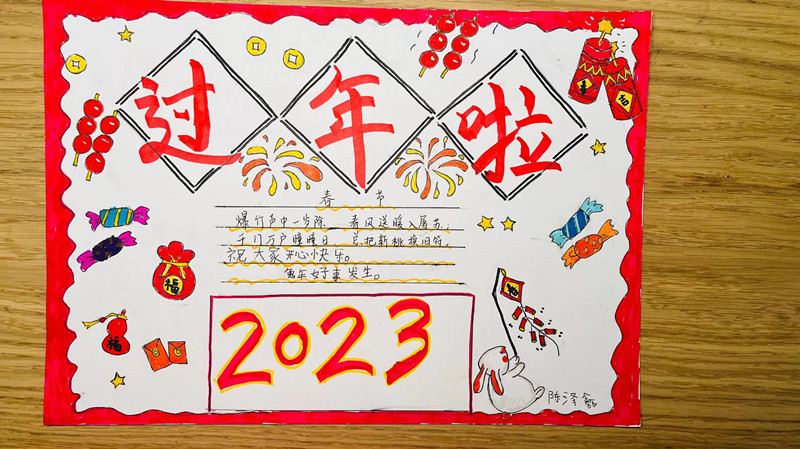 过年啦
春节
爆竹声中一岁除 春风送暖入屠苏;
千门万户曈曈日 总把新桃换旧符,
祝大家开心快乐。
兔年好事发生。
福
福
2023
陈泽